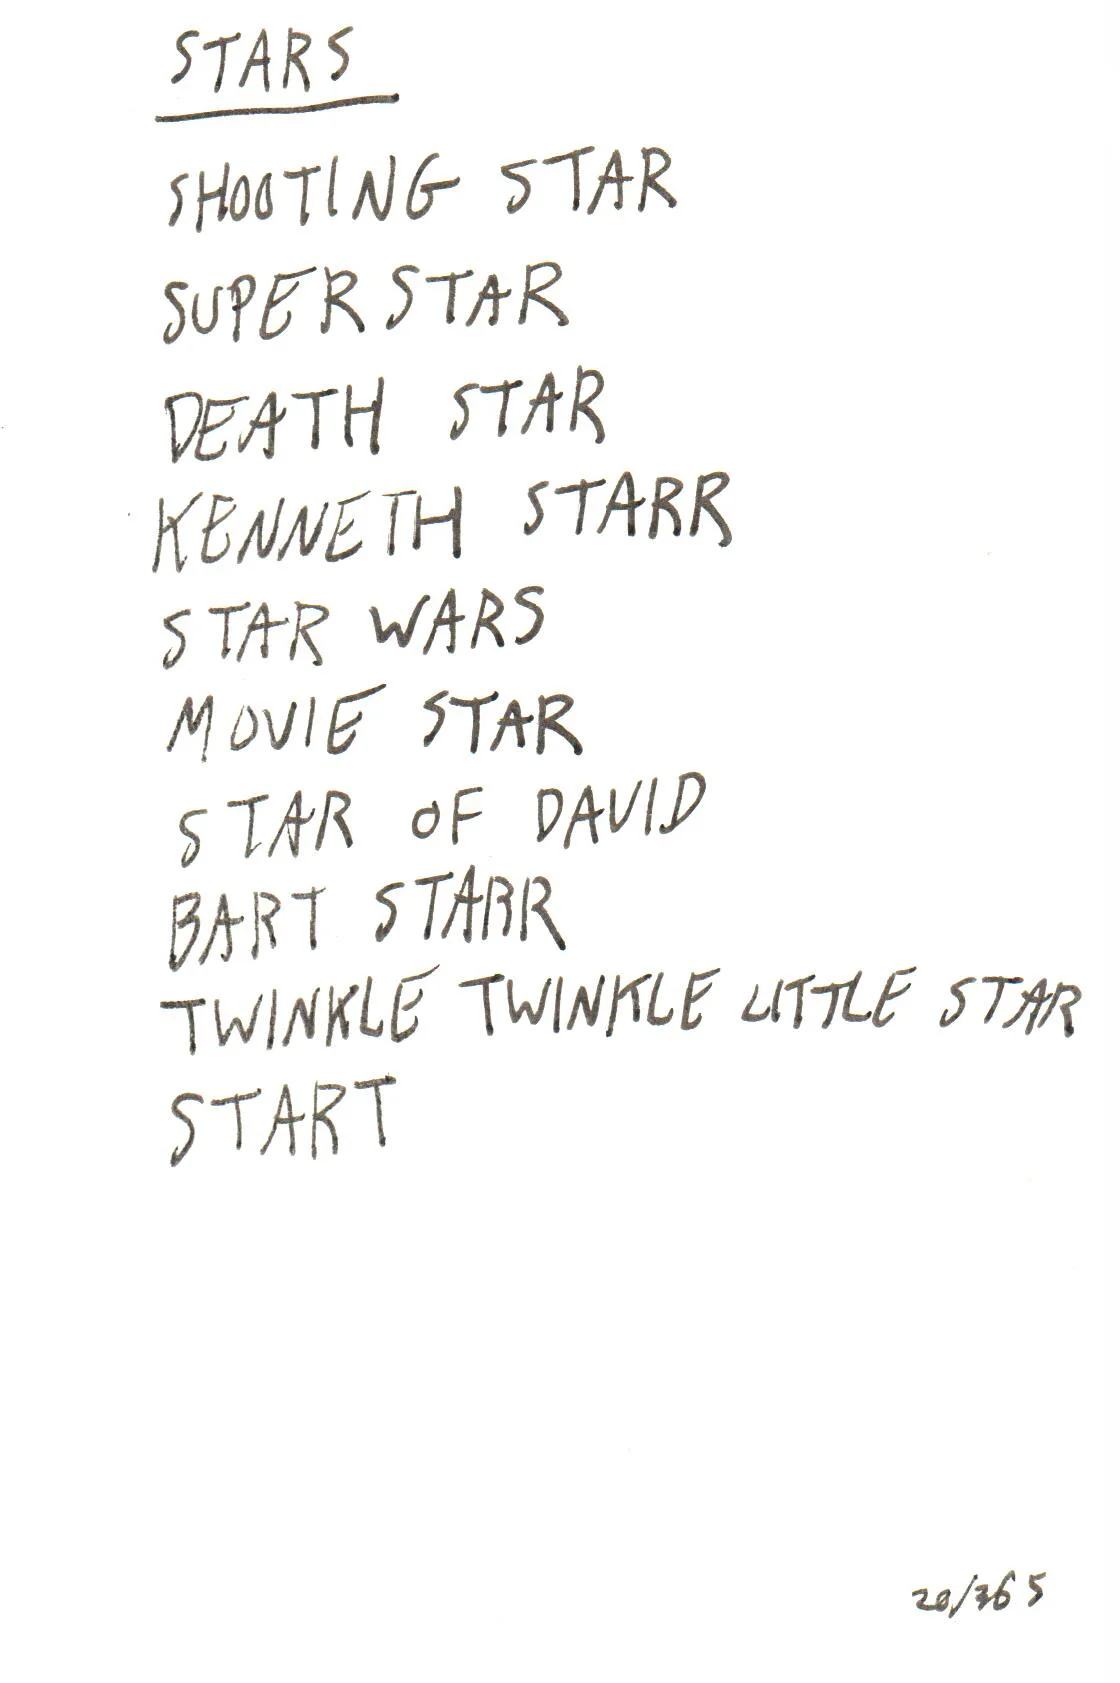 STARS
SHOOTING STAR
SUPERSTAR
DEATH STAR
KENNETH STARR
STAR WARS
MOVIE STAR
STAR OF DAVID
BART STARR
TWINKLE TWINKLE LITTLE STAR
START
20/365